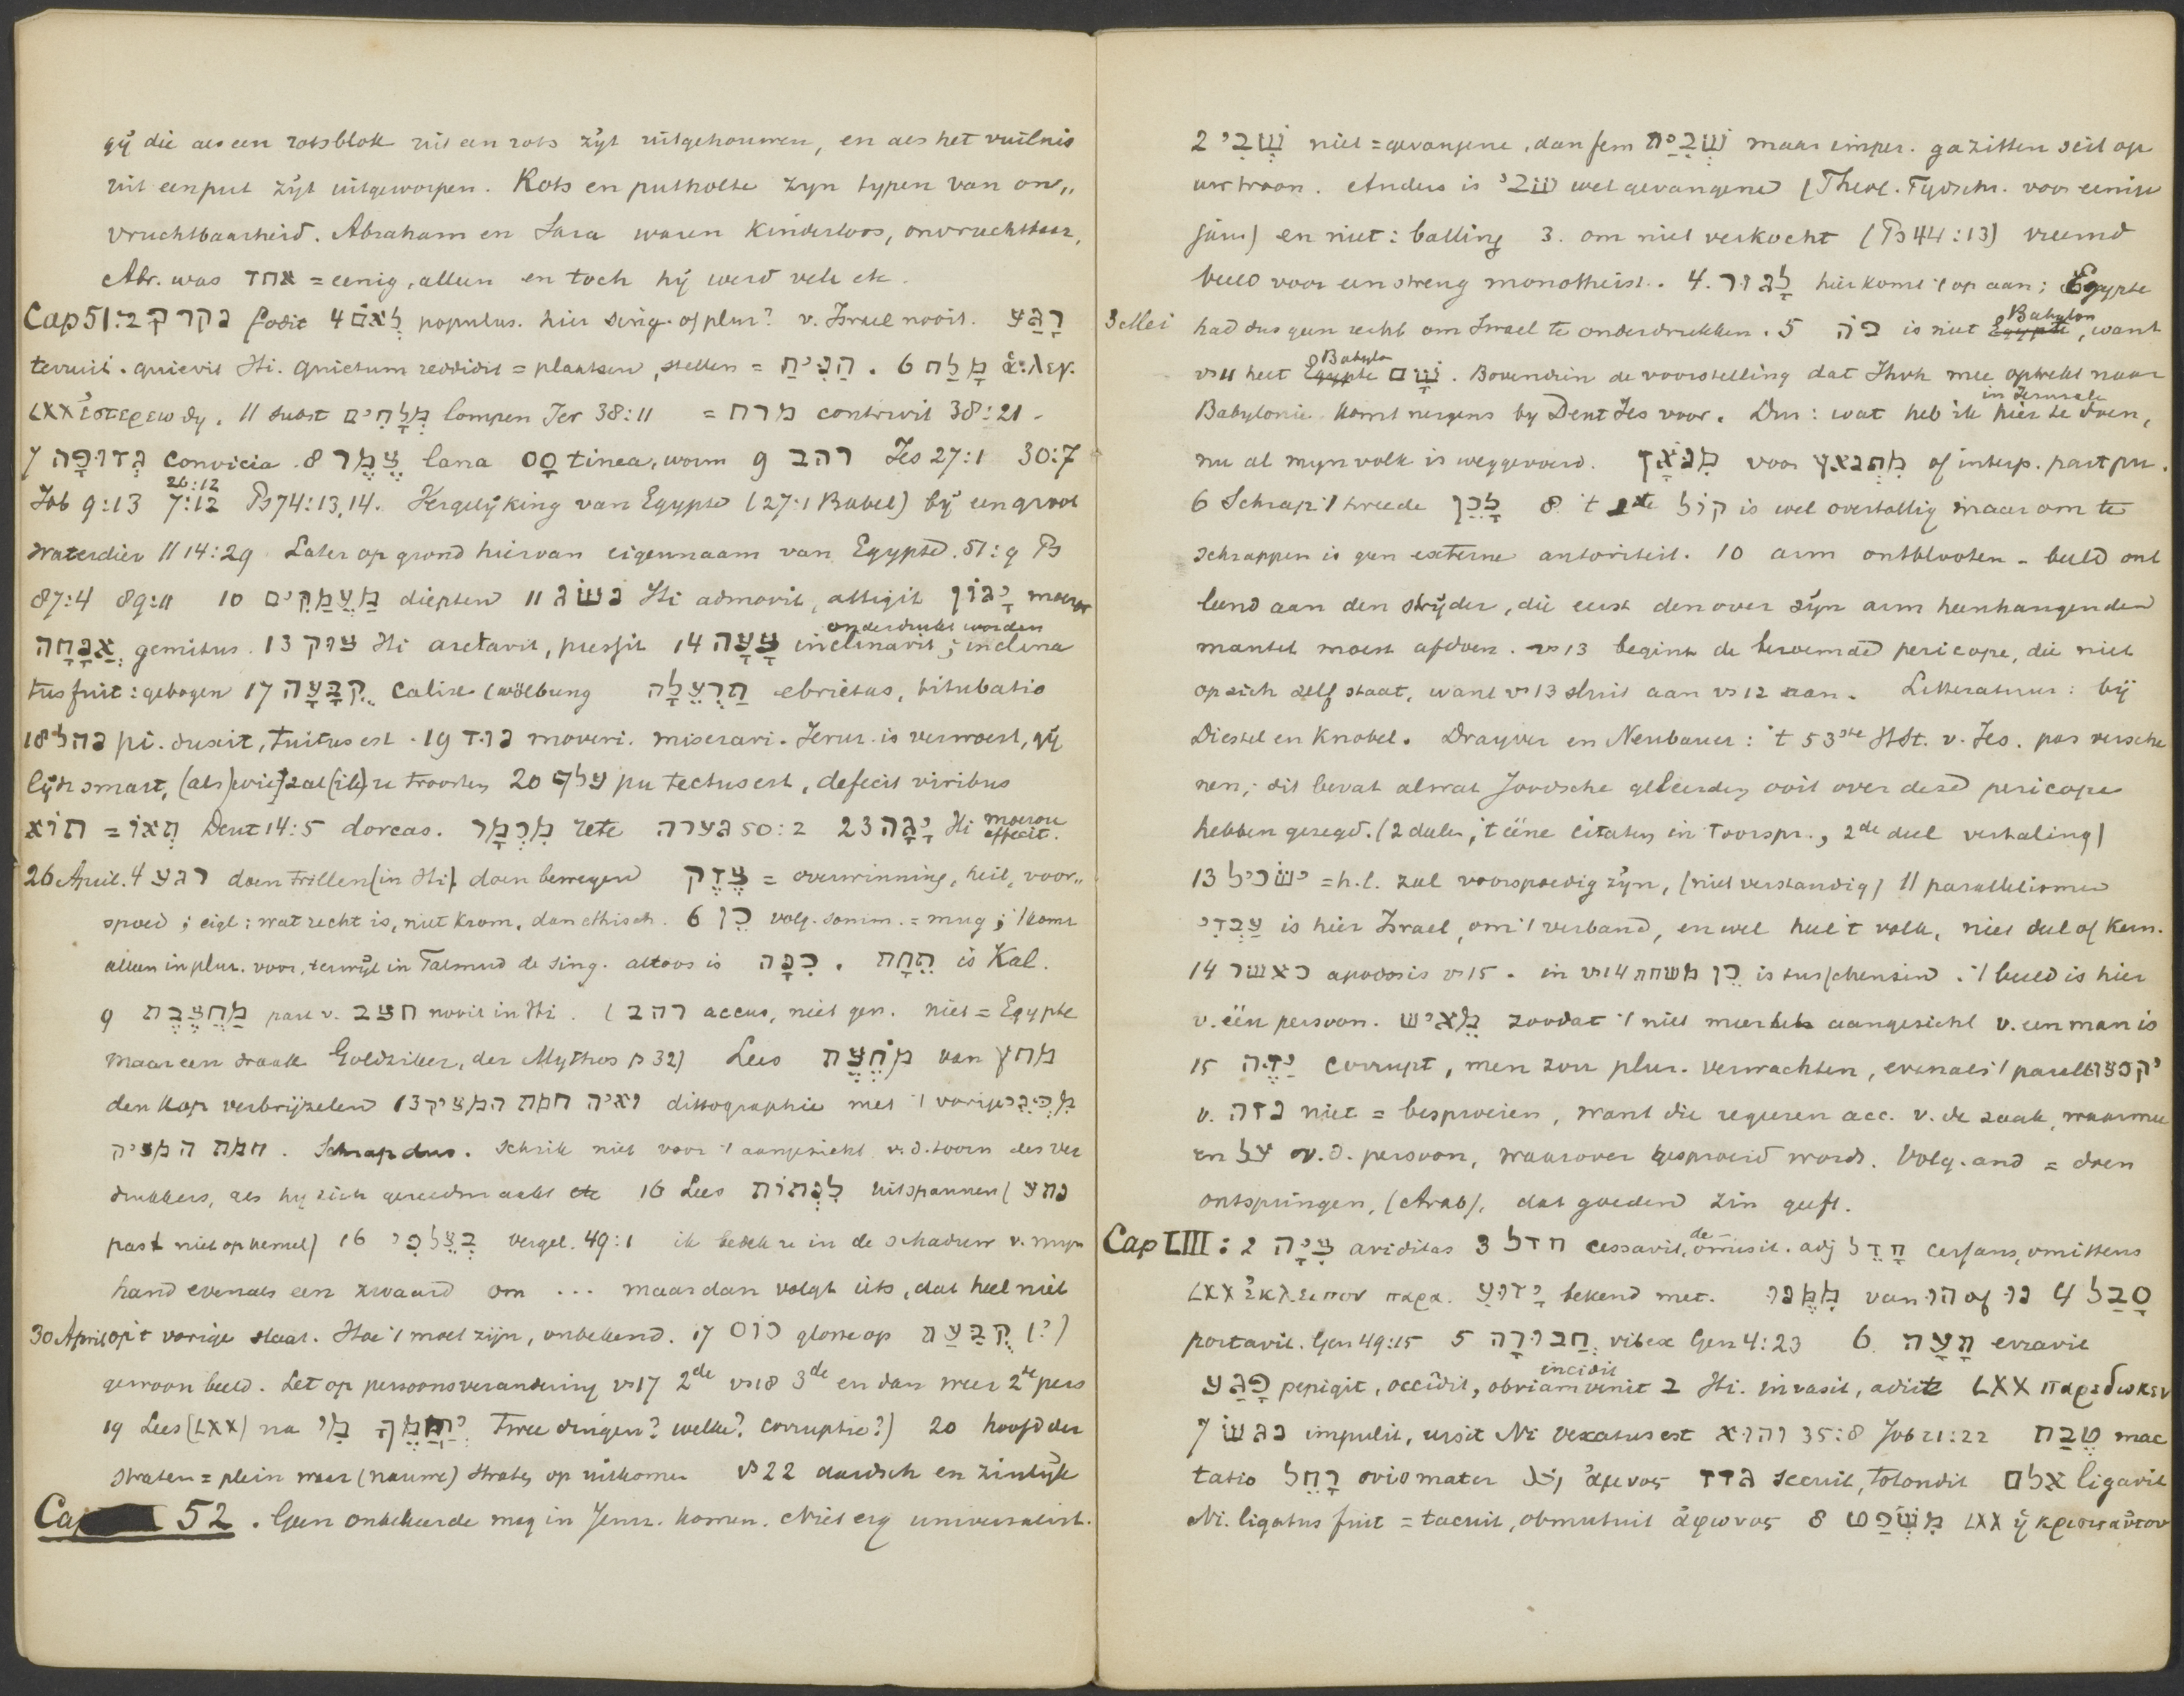 gij die als een rotsblok uit een rots zijt uitgehouwen, en als het vuilnis
uit een put zijt uitgeworpen. Rots en putholte zyn typen van on„
vruchtbaarheid. Abraham en Sara waren Kinderloos, onvruchtbaar,
Abr. was אחד = eenig, alleen en toch hij werd vele etc.
Cap 51:2 נקר fodit 4 לְאֹם populus. hier sing. of plur? v. Israel nooit. רָגַע
terruit. quievit Hi. quietum reddidit = plaatsen, stellen = הִנִּיחַ. 6 מָלַח ἅ:λεγ.
LXX ἐστερεωθη. 11 subst מְלָחִים lompen Jer 38:11 = מרח contrivit 38:21 -
7 גִּדּוּפָה convicia. 8 צֶמֶר lana סָס tinea, worm 9 רהב Jes 27:1 30:7
Job 9:13 26:12 7:12 Ps 74:13,14. Vergelijking van Egypte (27:1 Babel) bij een groot
waterdier 11 14:29 Later op grond hiervan eigennaam van Egypte. 51:9 Ps
87:4 89:11 10 מַעֲמַקִּים diepten 11 נשׂג Hi admovit, attigit יָגוֹן moeror
אֲנָחָה gemitus. 13 צוק Hi arctavit, pressit 14 צָעָה inclinavit; inclina
onderdrukt worden
tus fuit: gebogen 17 קֻבַּעַת calix (wölbung תַּרְעֵלָה ebrietas, titubatio
18 נהל pi. duxit, tuitus est. 19 נוד moveri. miserari. Jerus. is verwoest, gij
lijdt smart, (als) wie zal (ik) u troosten 20 עלף pu tectus est, defecit viribus
תְּאוֹ = תוֹא Deut 14:5 dorcas. מִכְמָר rete גערה 50:2 23 יָגָה Hi moerore affecit.
26 April. 4 רגע doen trillen (in Hi) doen bewegen צֶדֶק = overwinning, heil, voor„
spoed; eigl: wat recht is, niet krom, dan ethisch. 6 כֵּן volg. somm. = mug; 't komt
alleen in plur. voor, terwijl in Talmud de sing. altoos is כִּנָּה. תֵּחַת is Kal.
9 מַחְצֶבֶת part v. חצב nooit in Hi. (רהב accus, niet gen. niet = Egypte
maar een draak Goldziher, der Mythos p 32) Lees מֹחֶצֶת van מחץ
den kop verbrijzelen 13 ואיה חמת המציק dittographie met 't vorige מִפְּנֵי
חמת המציק. Schrap dus. schrik niet voor 't aangezicht v. d. toorn des ver
drukkers, als hy zich gereedmaakt etc 16 Lees לִנְטוֹת uitspannen (נטע
past niet op hemel) 16 בְּצֵל כַּפִּי vergel. 49:1 ik bedek u in de schaduw v. mijn
hand evenals een zwaard om ... maar dan volgt iets, dat heel niet
30 April op 't vorige slaat. Hoe 't moet zijn, onbekend. 17 כוס glosse op קֻבַּעַת (?)
gewoon beeld. Let op persoonsverandering vs 17 2de vs 18 3de en dan weer 2de pers
19 Lees (LXX) na מִי יְנַחֲמֵךְ Twee dingen? welke? corruptie?) 20 hoofd der
straten = plein waar (nauwe) straten op uitkomen vs 22 aardsch en zinlijk
Cap 52. Geen onbekeerde mag in Jeruz. komen. Niet erg universalist.
2 שְׁבִי niet = gevangene, dan fem שְׁבִית maar imper. ga zitten scil op
uw troon. Anders is שׁבי wel gevangene (Theol. Tydschr. voor eenige
jaren) en niet: balling 3. om niet verkocht (Ps 44:13) vreemd
beeld voor een streng monotheist. 4. לָגוּר hier komt 't op aan; Egypte
3 Mei had dus geen recht om Israel te onderdrukken. 5 פֹּה is niet Egypte Babylon, want
vs 11 heet Egypte Babylon שָׁם. Bovendien de voorstelling dat Jhvh mee optrekt naar
Babylonie komt nergens by Deut Jes voor. Dus: wat heb ik hier in Jerusale te doen,
nu al mijn volk is weggevoerd. מִנֹּאָץ voor מִתְנֹאֵץ of interp. part pu.
6 Schrap 't tweede לָכֵן 8. 't 2de קוֹל is wel overtollig maar om te
schrappen is geen externe autoriteit. 10 arm ontblooten - beeld ont
leend aan den strijder, die eerst den over zijn arm heenhangenden
mantel moest afdoen. vs 13 begint de beroemde pericope, die niet
op zich zelf staat, want vs 13 sluit aan vs 12 aan. Litteratuur: bij
Diestel en Knobel. Drayver en Neubauer: 't 53ste Hst. v. Jes. pas versche
nen; dit bevat al wat Joodsche geleerden ooit over deze pericope
hebben gezegd. (2 delen, 't eene citaten in oorspr., 2de deel vertaling)
13 ישׂכיל = h.l. zal voorspoedig zijn, (niet verstandig) 11 parallelisme
עַבְדִּי is hier Israel, om 't verband, en wel heel 't volk, niet deel of kern.
14 כאשר apodosis vs 15. in vs 14 כֵּן משחת is tusschenzin. 't beeld is hier
v. één persoon. מֵאִישׁ zoodat 't niet meer het aangezicht v. een man is
15 יַזֶּה corrupt, men zou plur. verwachten, evenals 't parall יקפצו
v. נזה niet = besproeien, want die regeren acc. v. de zaak, waarmee
en על v. d. persoon, waarover gesproeid wordt. Volg. and = doen
ontspringen, (Arab), dat goeden zin geeft.
Cap LIII: 2 צִיָּה ariditas 3 חדל cessavit, omisit. adj חָדֵל cessans, de-omittens
LXX ἐκλειπον παρα. יָדוּעַ bekend met. מִמֶּנּוּ van הוּ of נוּ 4 סָבַל
portavit. Gen 49:15 5 חַבּוּרָה vibex Gen 4:23 6 תָּעָה erravit
פָּגַע pepigit, occidit, incidit obviam venit 2 Hi. invasit, adiit LXX παρεδωκεν
7 נגשׂ impulit, ursit Ni vexatus est והוא 35:8 Job 21:22 טֶבַח mac
tatio רָחֵל ovis mater ἀμνος גדד secuit, totondit אלם ligavit
Ni. ligatus fuit = tacuit, obmutuit ἀφωνος 8 מִשְׁפָּט LXX ἡ κρισις αὐτου